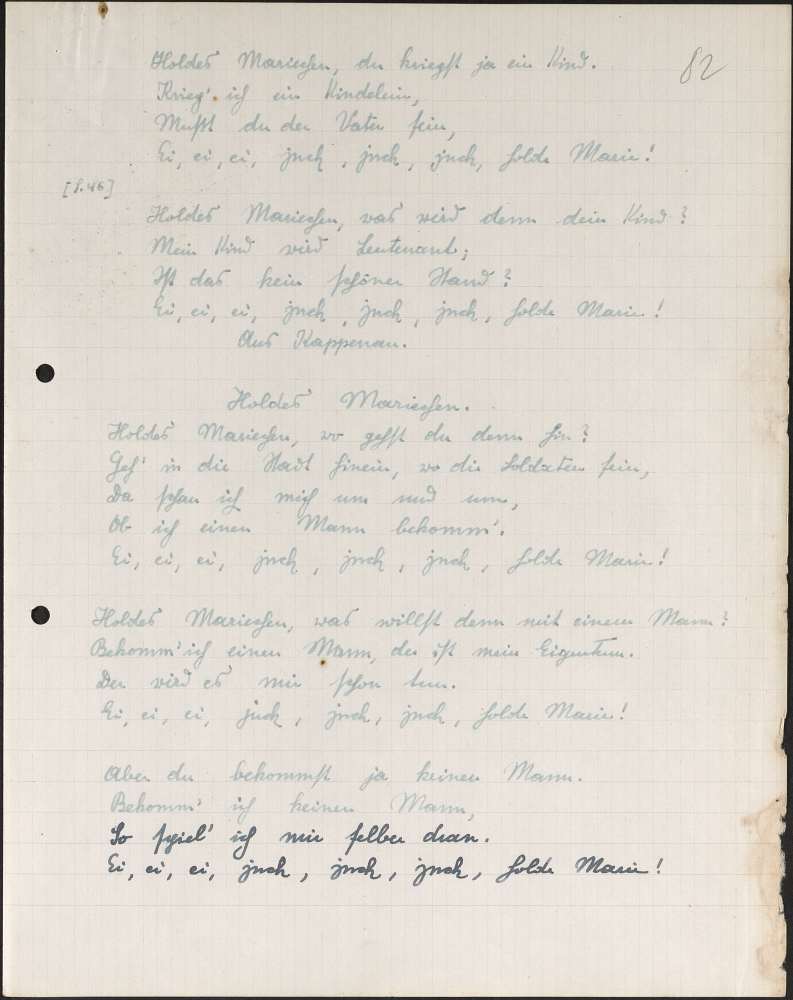 82
Holdes Mariechen, du kriegst ja ein Kind.
Krieg' ich ein Kindelein,
Mußt du der Vater sein,
Ei, ei, ei, juch, juch, juch, holde Marie!
[S. 46]
Holdes Mariechen, was wird denn dein Kind?
Mein Kind wird Leutenant;
Ist das kein schöner Stand?
Ei, ei, ei, juch, juch, juch, holde Marie!
Aus Kappenau.
Holdes Mariechen.
Holdes Mariechen, wo gehst du denn hin?
Geh' in die Stadt hinein, wo die Soldaten sein,
Da schau ich mich um und um,
Ob ich einen Mann bekomm'.
Ei, ei, ei, juch, juch, juch, holde Marie!
Holdes Mariechen, was willst denn mit einem Mann?
Bekomm' ich einen Mann, der ist mein Eigentum.
Der wird es mir schon tun.
Ei, ei, ei, juch, juch, juch, holde Marie!
Aber du bekommst ja keinen Mann.
Bekomm' ich keinen Mann,
So spiel' ich mir selber dran.
Ei, ei, ei, juch, juch, juch, holde Marie!